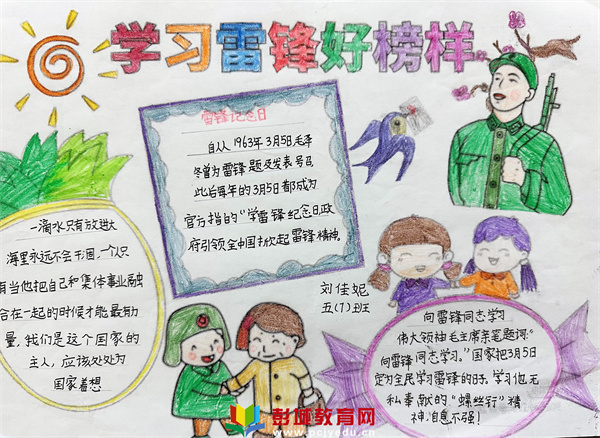 学习雷锋好榜样
雷锋纪念日
自从1963年3月5日毛泽
东曾为雷锋题及发表号召
此后每年的3月5日都成为
官方指的“学雷锋纪念日政
府引领全中国掀起雷锋精神。
一滴水只有放进大
海里永远不会干涸，一个人只
有当他把自己和集体事业融
合在一起的时候才能最有力
量，我们是这个国家的
主人，应该处处为
国家着想
刘佳妮
五(7)班
向雷锋同志学习
伟大领袖毛主席亲笔题词：“
向雷锋同志学习。”国家把3月5日
定为全民学习雷锋的日子。学习他无
私奉献的“螺丝钉”精
神，自息不强！
彭城教育网
www.pcjyedu.cn